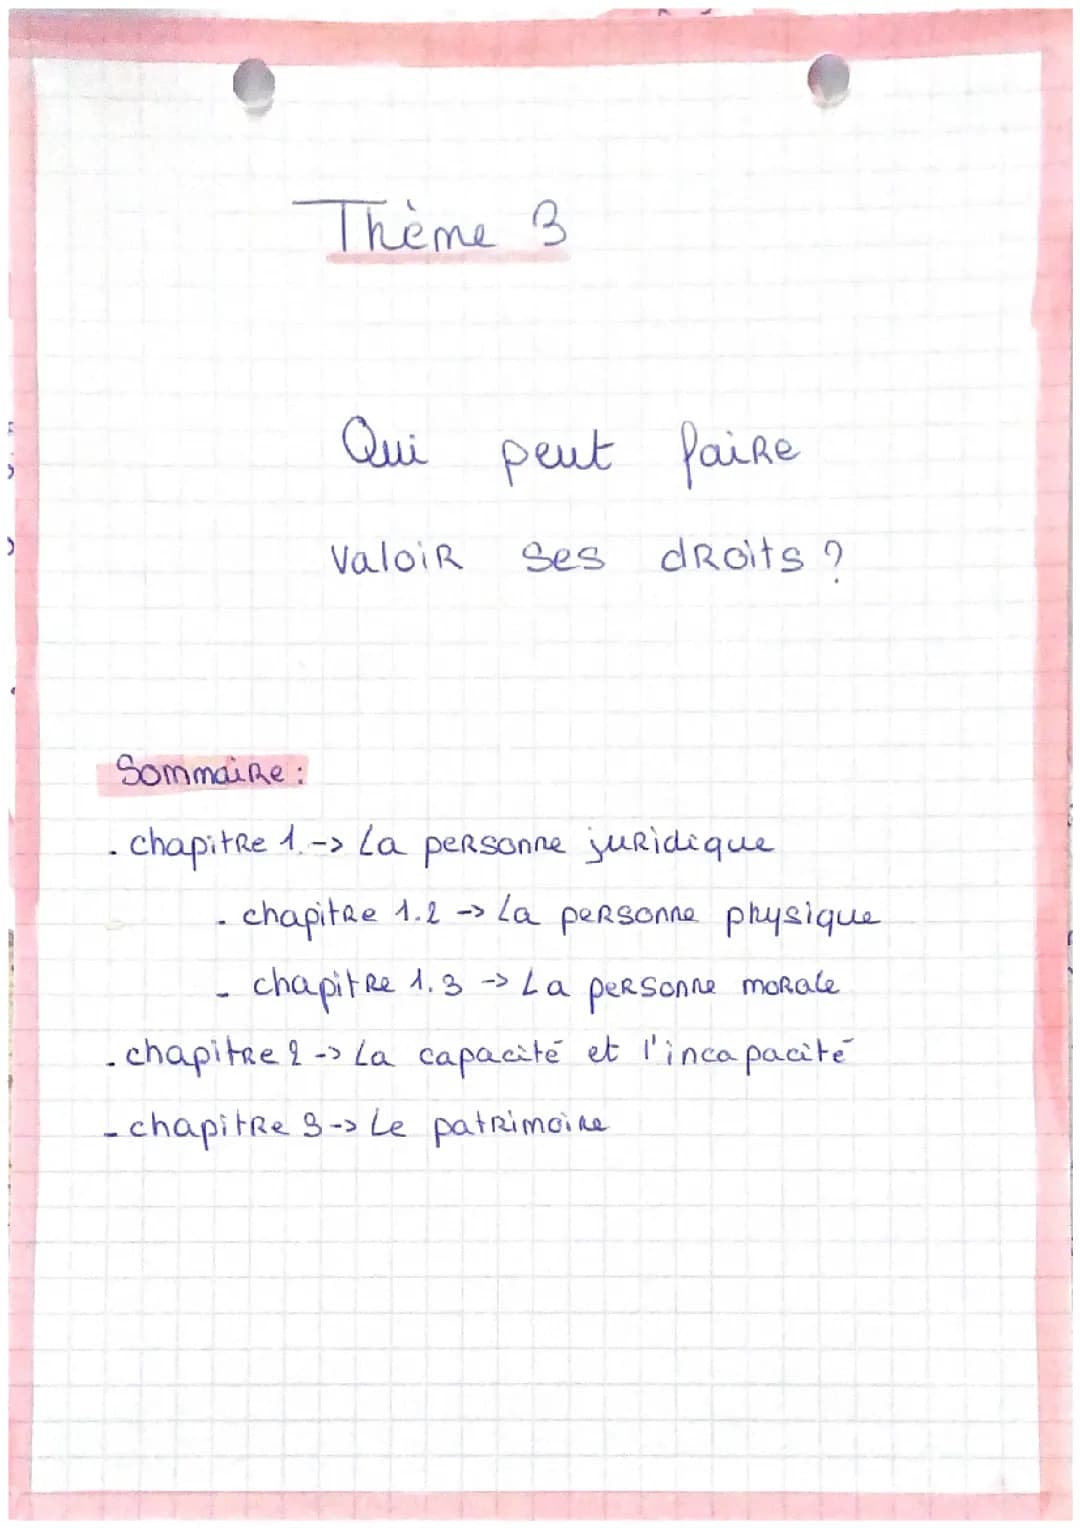 Thème 3
Qui peut faire
valoir ses droits ?
Sommaire :
. chapitre 1.-> La personne juridique
. chapitre 1.2 -> La personne physique
- chapitre 1.3 -> La personne morale
. chapitre 2 -> La capacité et l'incapacité
- chapitre 3 -> Le patrimoine